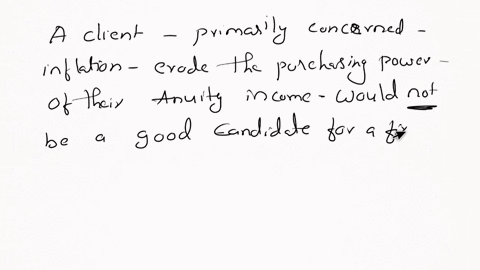 A client - primarily concerned -
inflation - erode the purchasing power -
of their Anuity income - would not
be a good candidate for a